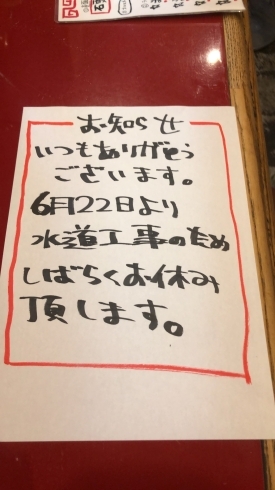 お知らせ
いつもありがとう
ございます。
6月22日より
水道工事のため
しばらくお休み
頂します。